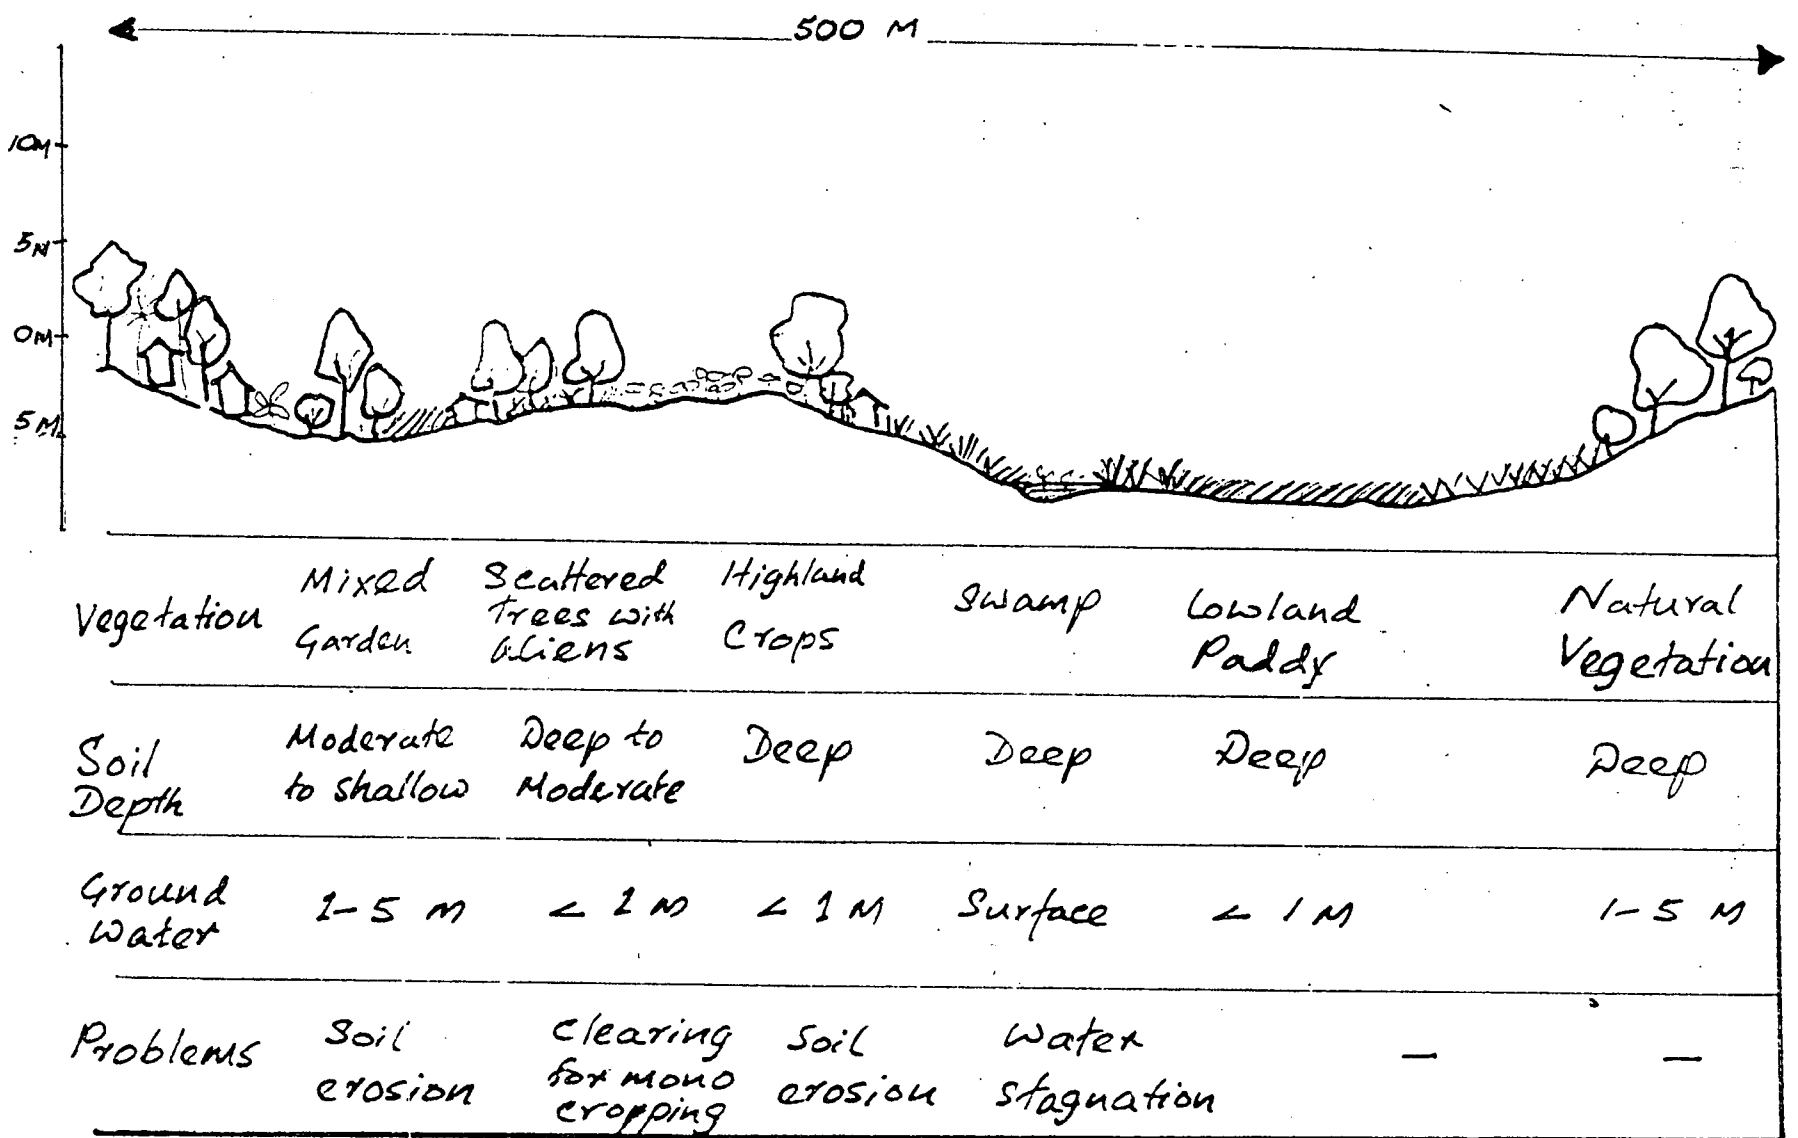 500 M
10M
5M
0M
5M
Vegetation
Mixed
Garden
Scattered
Trees with
aliens
Highland
Crops
Swamp
Lowland
Paddy
Natural
Vegetation
Soil
Depth
Moderate
to shallow
Deep to
Moderate
Deep
Deep
Deep
Deep
Ground
Water
1-5 M
< 1 M
< 1 M
Surface
< 1 M
1-5 M
Problems
Soil
erosion
Clearing
for mono
cropping
Soil
erosion
Water
Stagnation
—
—